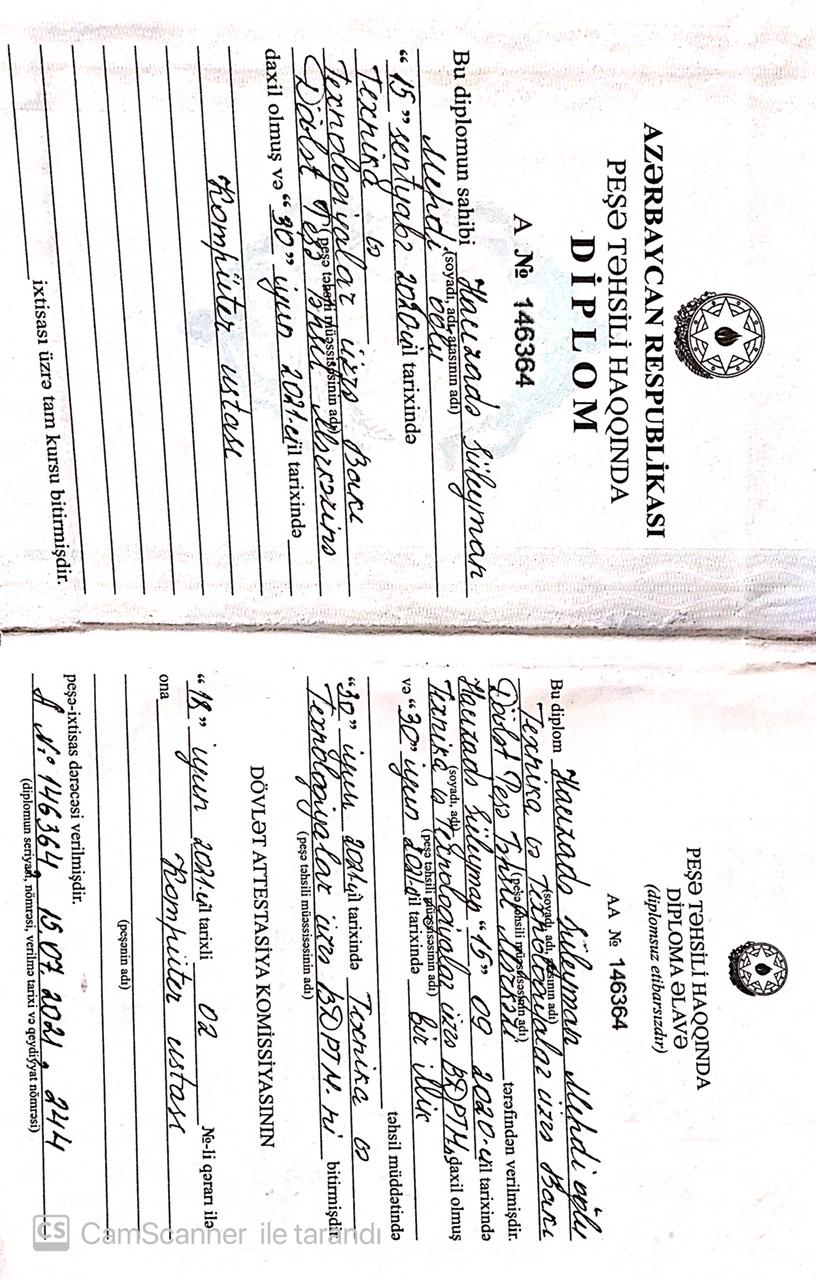 AZƏRBAYCAN RESPUBLİKASI
PEŞƏ TƏHSİLİ HAQQINDA
DİPLOM
A № 146364
Bu diplomun sahibi Hacızadə Süleyman
(soyadı, adı, atasının adı)
Mehdi oğlu
“15” sentyabr 2020-ci il tarixində
Texnika və
Texnologiyalar üzrə Bakı
(peşə təhsili müəssisəsinin adı)
Dövlət Peşə Təhsil Mərkəzinə
daxil olmuş və “30” iyun 2021-ci il tarixində
Kompüter ustası
ixtisası üzrə tam kursu bitirmişdir.
PEŞƏ TƏHSİLİ HAQQINDA
DİPLOMA ƏLAVƏ
(diplomsuz etibarsızdır)
AA № 146364
Bu diplom Hacızadə Süleyman Mehdi oğlu
(soyadı, adı, atasının adı)
Texnika və Texnologiyalar üzrə Bakı
(peşə təhsili müəssisəsinin adı)
Dövlət Peşə Təhsil Mərkəzi tərəfindən verilmişdir.
Hacızadə Süleyman “15” 09 2020-ci il tarixində
(soyadı, adı)
Texnika və Texnologiyalar üzrə BDPTM daxil olmuş
(peşə təhsili müəssisəsinin adı)
və “30” iyun 2021-ci il tarixində bir illik
təhsil müddətində
“30” iyun 2021-ci il tarixində Texnika və
Texnologiyalar üzrə BDPTM-ni bitirmişdir
(peşə təhsili müəssisəsinin adı)
DÖVLƏT ATTESTASİYA KOMİSSİYASININ
“18” iyun 2021-ci il tarixli 02 №-li qərarı ilə
ona Kompüter ustası
(peşənin adı)
peşə-ixtisas dərəcəsi verilmişdir.
A №: 146364, 15 07 2021, 244
(diplomun seriyası, nömrəsi, verilmə tarixi və qeydiyyat nömrəsi)
CS CamScanner ilə tarandı